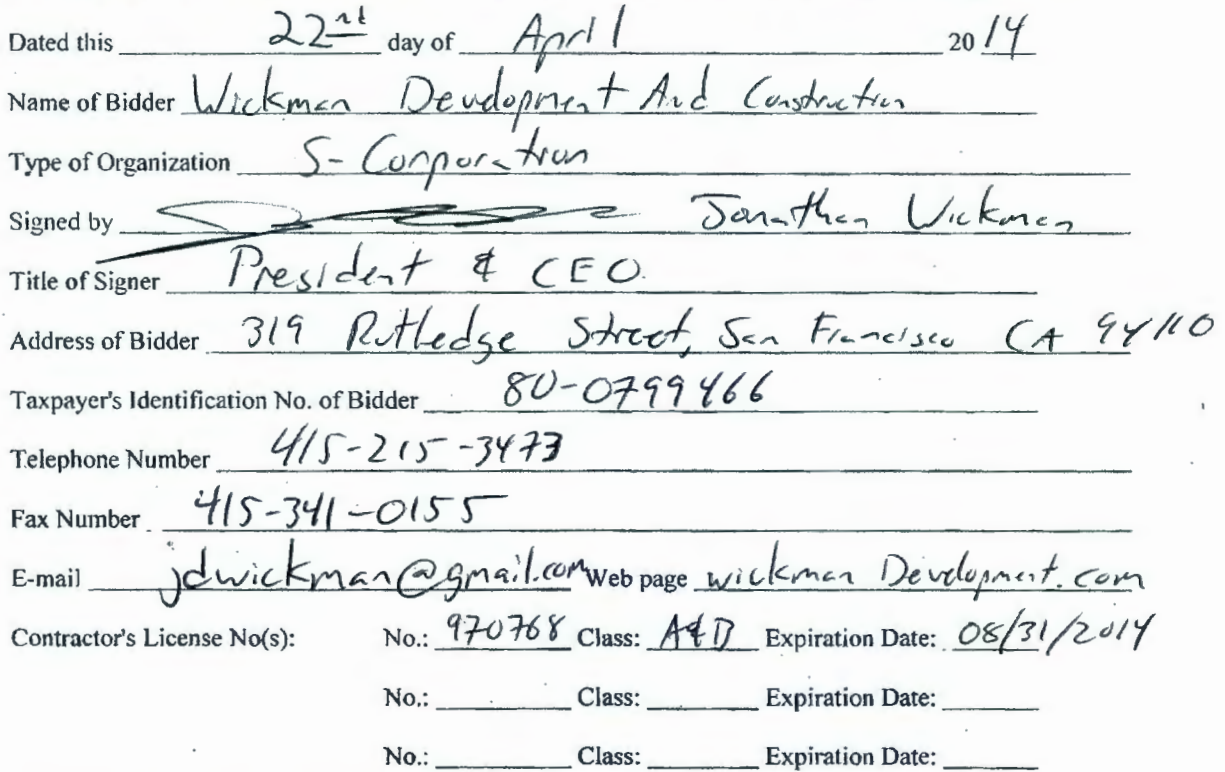 Dated this 22nd day of April 2014
Name of Bidder Wickman Development And Construction
Type of Organization S-Corporation
Signed by Jonathan Wickman
Title of Signer President & CEO
Address of Bidder 319 Rutledge Street, San Francisco CA 94110
Taxpayer's Identification No. of Bidder 80-0799466
Telephone Number 415-215-3473
Fax Number 415-341-0155
E-mail jdwickman@gmail.com Web page wickman Development.com
Contractor's License No(s): No.: 970768 Class: A&B Expiration Date: 08/31/2014
No.: Class: Expiration Date:
No.: Class: Expiration Date: